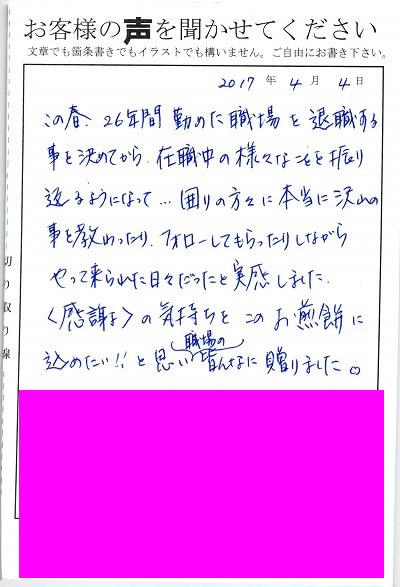 お客様の声を聞かせてください
文章でも箇条書きでもイラストでも構いません。ご自由にお書き下さい。
2017年 4月 4日
この春 26年間勤めた職場を退職する
事を決めてから、在職中の様々なことを振り
返るようになって…囲りの方々に本当に沢山の
事を教わったり、フォローしてもらったりしながら
やって来られた日々だったと実感しました。
〈感謝〉の気持ちを このお煎餅に
込めたい!! と思い 職場の皆んなに贈りました。
切り取り線